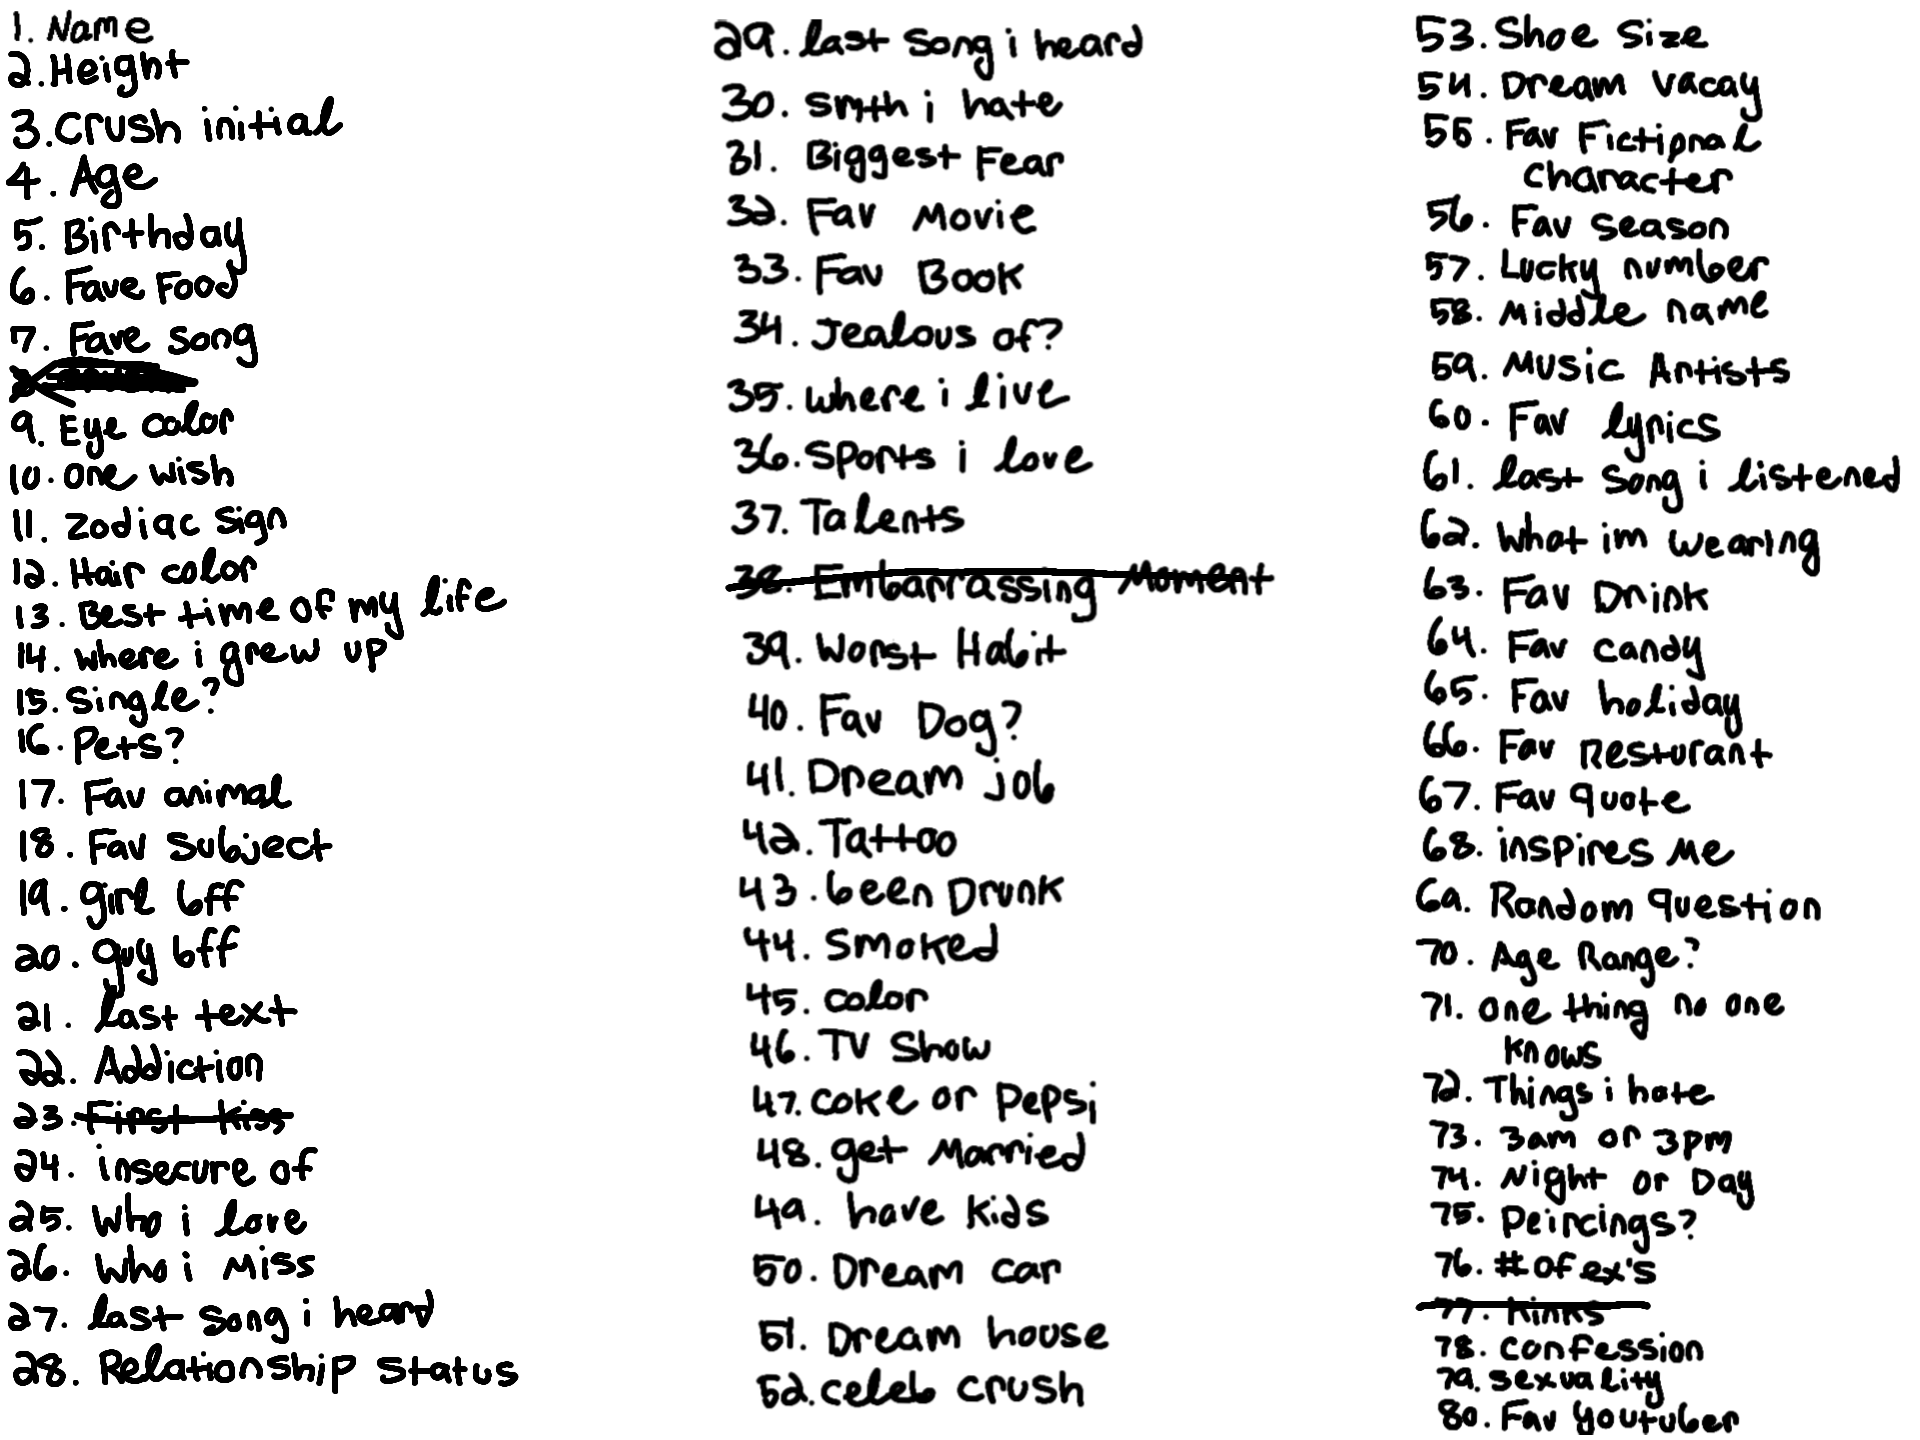 1. Name
2. Height
3. Crush initial
4. Age
5. Birthday
6. Fave Food
7. Fave song
9. Eye color
10. one wish
11. zodiac sign
12. Hair color
13. Best time of my life
14. where i grew up
15. single?
16. Pets?
17. Fav animal
18. Fav subject
19. girl bff
20. guy bff
21. last text
22. Addiction
23. First kiss
24. insecure of
25. Who i love
26. Who i Miss
27. last song i heard
28. Relationship status
29. last song i heard
30. smth i hate
31. Biggest Fear
32. Fav Movie
33. Fav Book
34. Jealous of?
35. where i live
36. Sports i love
37. Talents
38. Embarrassing Moment
39. Worst Habit
40. Fav Dog?
41. Dream job
42. Tattoo
43. been Drunk
44. Smoked
45. color
46. TV Show
47. coke or Pepsi
48. get Married
49. have kids
50. Dream car
51. Dream house
52. celeb crush
53. Shoe Size
54. Dream vacay
55. Fav Fictional
character
56. Fav season
57. Lucky number
58. Middle name
59. Music Artists
60. Fav lyrics
61. last song i listened
62. What im wearing
63. Fav Drink
64. Fav candy
65. Fav holiday
66. Fav Resturant
67. Fav quote
68. inspires Me
69. Random question
70. Age Range?
71. one thing no one
knows
72. Things i hate
73. 3am or 3pm
74. Night or Day
75. Peircings?
76. # of ex's
77. kinks
78. confession
79. sexuality
80. Fav youtuber